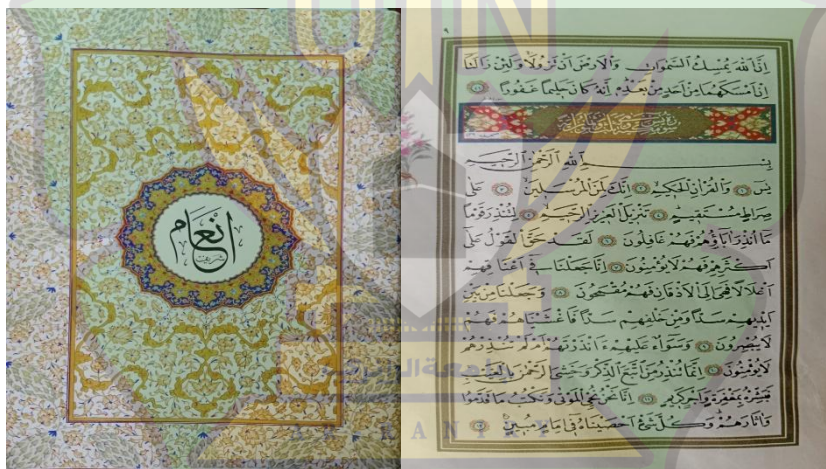 انعام
شريف
٩
اِنَّ اللّٰهَ يُمْسِكُ السَّمٰوَاتِ وَالْاَرْضَ اَنْ تَزُولَا وَلَئِنْ زَالَتَا
اِنْ اَمْسَكَهُمَا مِنْ اَحَدٍ مِنْ بَعْدِهِ اِنَّهُ كَانَ حَلِيمًا غَفُورًا
بِسْمِ اللّٰهِ الرَّحْمٰنِ الرَّحِيمِ
يٰسٓ وَالْقُرْاٰنِ الْحَكِيمِ اِنَّكَ لَمِنَ الْمُرْسَلِينَ عَلٰى
صِرَاطٍ مُسْتَقِيمٍ تَنْزِيلَ الْعَزِيزِ الرَّحِيمِ لِتُنْذِرَ قَوْمًا
مَا اُنْذِرَ اٰبَاؤُهُمْ فَهُمْ غَافِلُونَ لَقَدْ حَقَّ الْقَوْلُ عَلٰى
اَكْثَرِهِمْ فَهُمْ لَا يُؤْمِنُونَ اِنَّا جَعَلْنَا فِى اَعْنَاقِهِمْ
اَغْلَالًا فَهِىَ اِلَى الْاَذْقَانِ فَهُمْ مُقْمَحُونَ وَجَعَلْنَا مِنْ بَيْنِ
اَيْدِيهِمْ سَدًّا وَمِنْ خَلْفِهِمْ سَدًّا فَاَغْشَيْنَاهُمْ فَهُمْ
لَا يُبْصِرُونَ وَسَوَاءٌ عَلَيْهِمْ ءَاَنْذَرْتَهُمْ اَمْ لَمْ تُنْذِرْهُمْ
لَا يُؤْمِنُونَ اِنَّمَا تُنْذِرُ مَنِ اتَّبَعَ الذِّكْرَ وَخَشِىَ الرَّحْمٰنَ بِالْغَيْبِ
فَبَشِّرْهُ بِمَغْفِرَةٍ وَاَجْرٍ كَرِيمٍ اِنَّا نَحْنُ نُحْيِ الْمَوْتٰى وَنَكْتُبُ مَا قَدَّمُوا
وَاٰثَارَهُمْ وَكُلَّ شَىْءٍ اَحْصَيْنَاهُ فِى اِمَامٍ مُبِينٍ